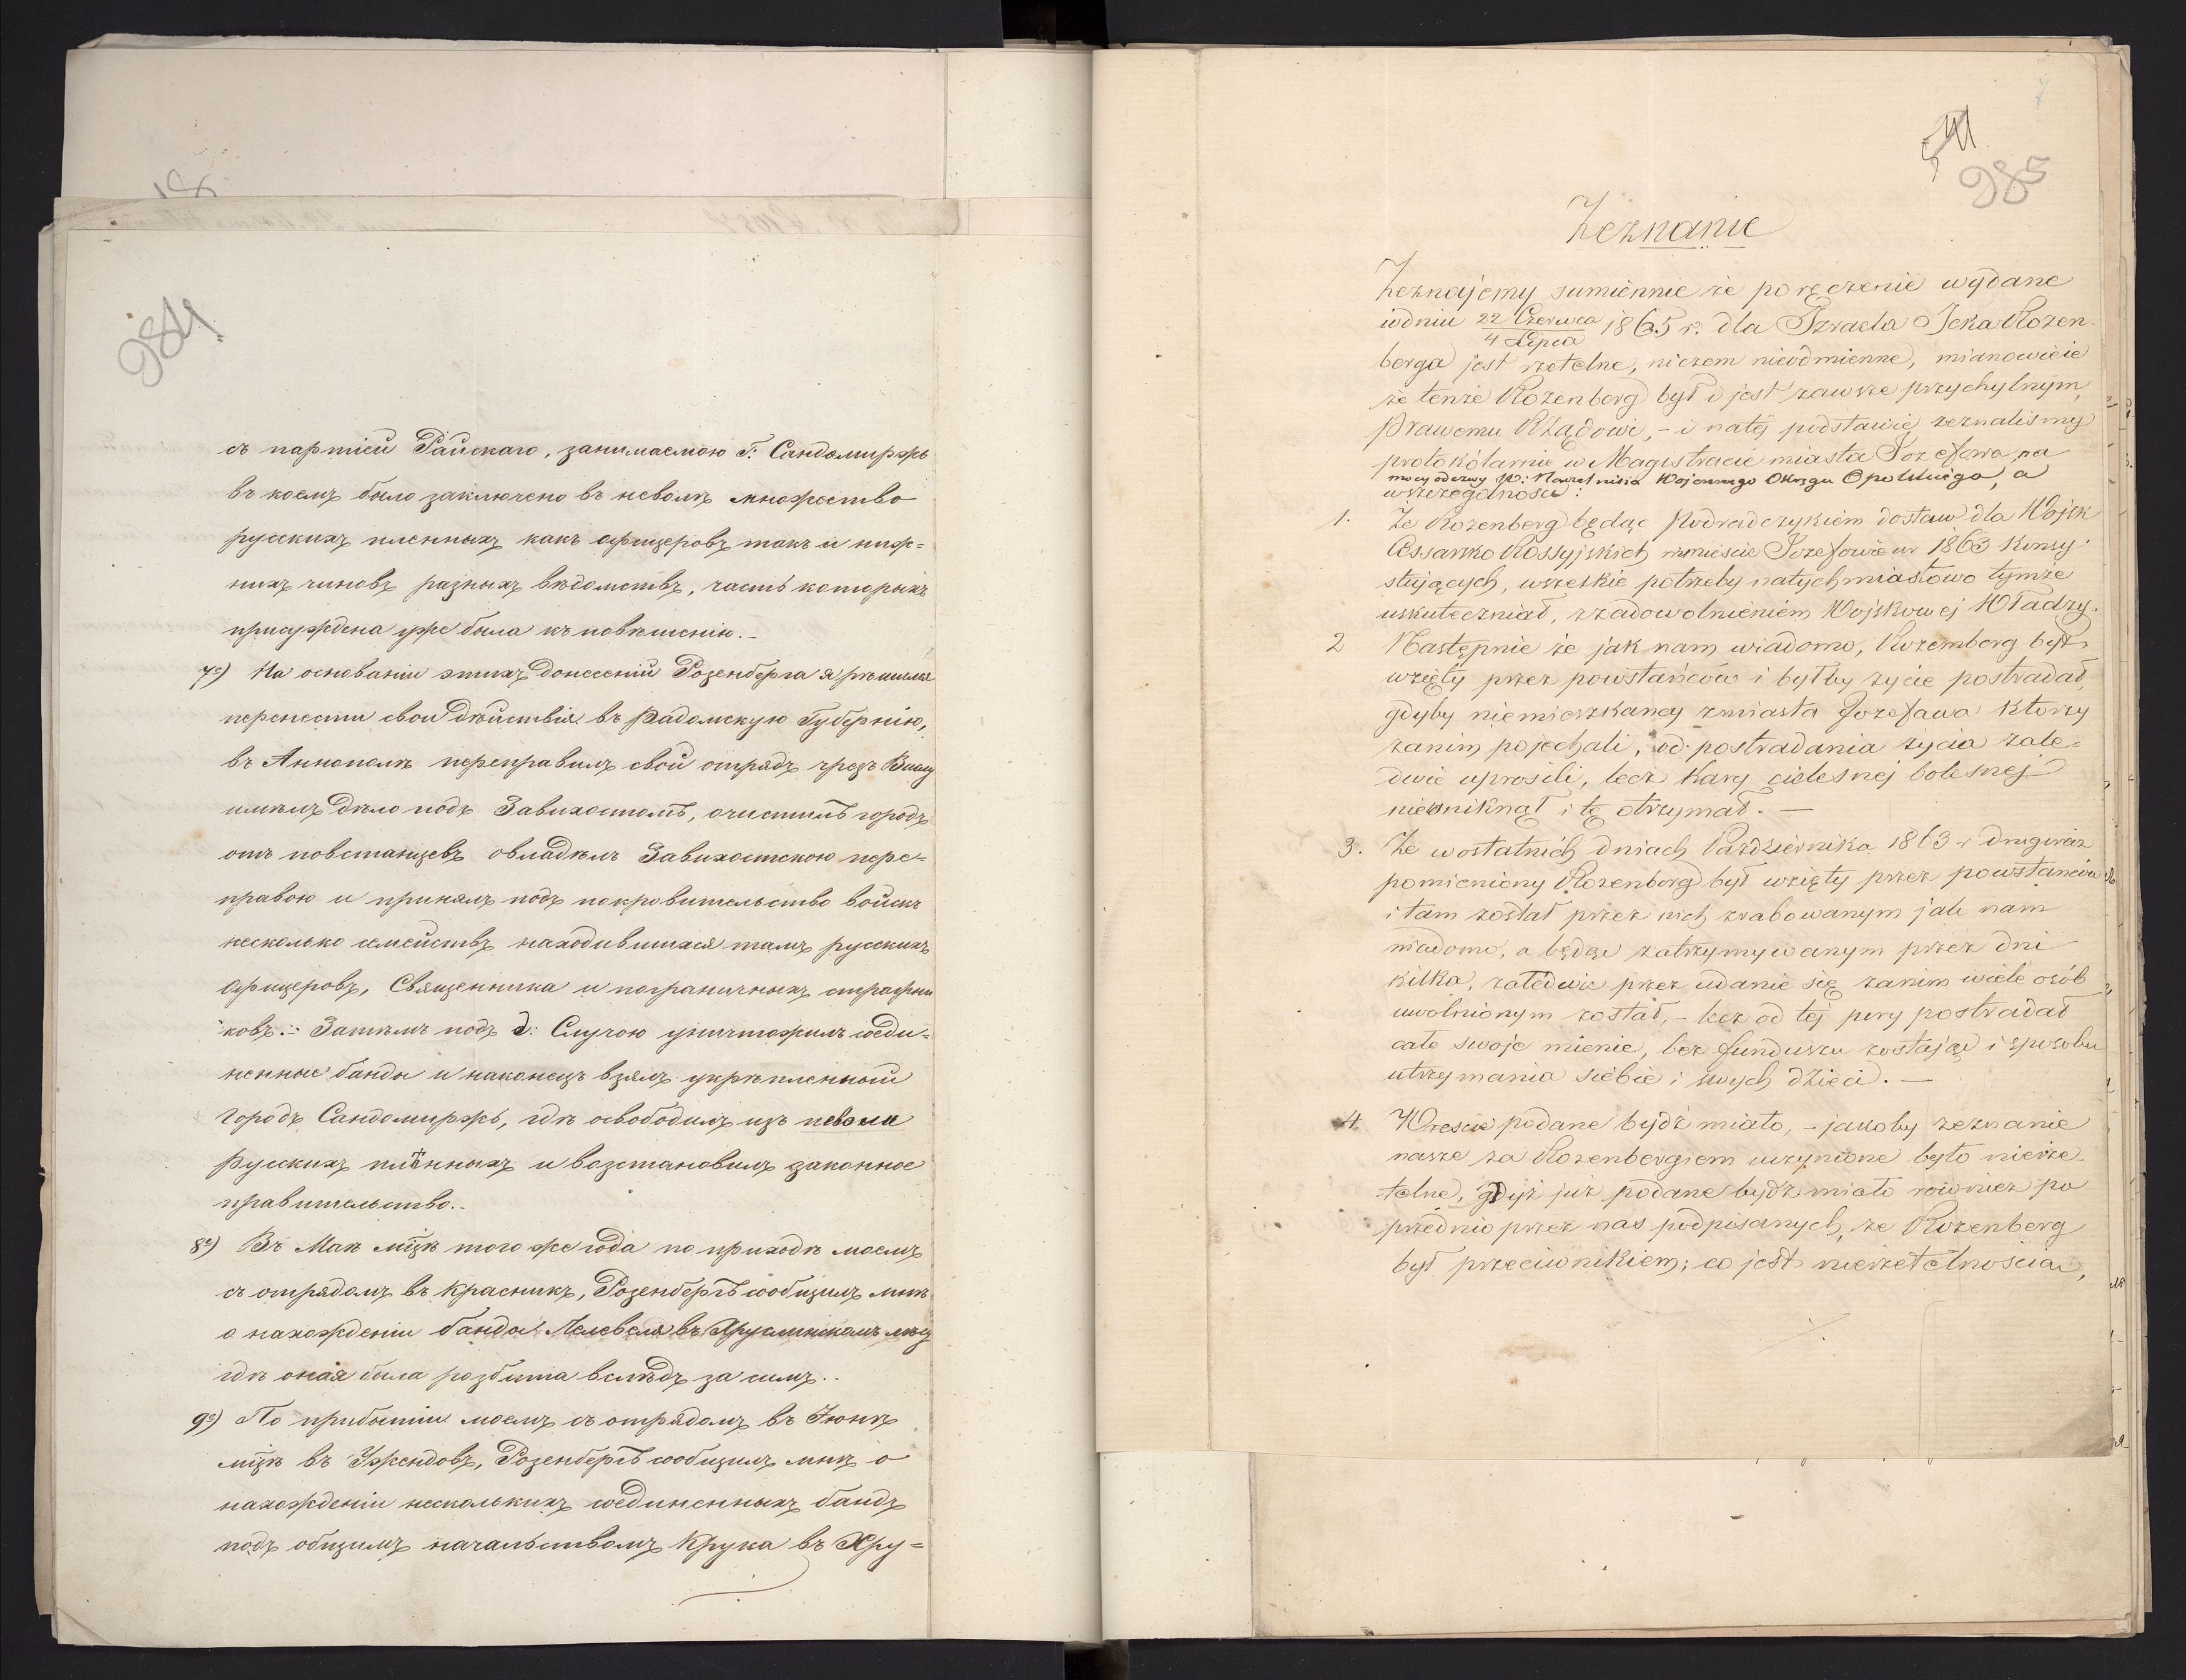 984
съ партіей Райскаго, занимаемою Г. Сандомиржъ
въ коемъ было заключено въ неволѣ множество
русскихъ пленныхъ какъ офицеровъ такъ и ниж=
нихъ чиновъ разныхъ вѣдомствъ, часть которыхъ
присуждена уже была къ повѣшенію.-
7е) На основаніи этихъ донесеній Розенберга я рѣшился
перенести свои дѣйствія въ Радомскую Губернію,
въ Аннополѣ переправилъ свой отрядъ чрезъ Вислу
имѣлъ дѣло подъ Завихостомъ, очистилъ городъ
отъ повстанцевъ овладѣлъ Завихостскою пере=
правою и принялъ подъ покровительство войскъ
несколько семействъ находившихся тамъ русскихъ
офицеровъ, Священника и пограничныхъ стражни
ковъ.- Затѣмъ подъ д: Слугою уничтожилъ соеди=
ненные банды и наконецъ взялъ укрѣпленный
городъ Сандомиржъ, гдѣ освободилъ изъ неволи
русскихъ плѣнныхъ и возстановилъ законное
правительство.-
8е) Въ Маѣ мцѣ того же года по приходѣ моемъ
съ отрядомъ въ Красникъ, Розенбергъ сообщилъ мнѣ
о нахожденіи банды Лелевеля въ Хруслинскомъ лѣсу
гдѣ оная была розбита вслѣдъ за симъ..
9е) По прибытіи моемъ съ отрядомъ въ Іюнѣ
мцѣ въ Уржендовъ, Розенбергъ сообщилъ мнѣ о
нахожденіи несколькихъ соединенныхъ бандъ
подъ общимъ начальствомъ Крука въ Хру=
985
Zeznanie
Zeznajemy sumiennie że poręczenie wydane
wdniu 22 Czerwca / 4 Lipca 1865 r. dla Izraela Icka Rozen-
berga jest rzetelne, niczem nieodmienne, mianowicie
że tenże Rozenberg był i jest zawsze przychylnym,
Prawemu Rządowi, - i natéj podstawie zeznalismy
protokólarnie w Magistracie miasta Jozefowa, na
mocy odezwy W: Naczelnika Wojennego Okręgu Opolskiego, a
wszczegolnosci:
1. Ze Rozenberg będąc Podradczykiem dostaw dla Wojsk
Cessarsko Rossyjskich wmieście Jozefowie w 1863 konsy-
stujących, wszelkie potrzeby natychmiastowo tymże
uskuteczniał, zzadowolnieniem Wojskowej Władzy.
2 Następnie że jak nam wiadomo, Rozemberg był
wzięty przez powstańców i byłby życie postradał,
gdyby niemieszkancy zmiasta Jozefowa ktorzy
zanim pojechali, od postradania życia zale=
dwie uprosili, lecz kary cielesnej bolesnej
nieuniknął i tę otrzymał. -
3. Ze wostatnich dniach Pazdziernika 1863 r drugiraz
pomieniony Rozenberg był wzięty przez powstańców
i tam został przez nich zrabowanym jak nam
wiadomo, a będąc zatrzymywanym przez dni
kilka, zaledwie przez udanie się zanim wiele osób
uwolnionym został, - lecz od tej pory postradał
całe swoje mienie, bez funduszu zostając i sposobu
utrzymania siebie i swych dzieci. -
4. Wreście podane bydź miało, - jakoby zeznanie
nasze za Rozenbergiem uczynione było nierze-
telne, gdyż już podane bydź miało rownież po
przednio przez nas podpisanych, że Rozenberg
był przeciwnikiem; co jest nierzetelnościa,